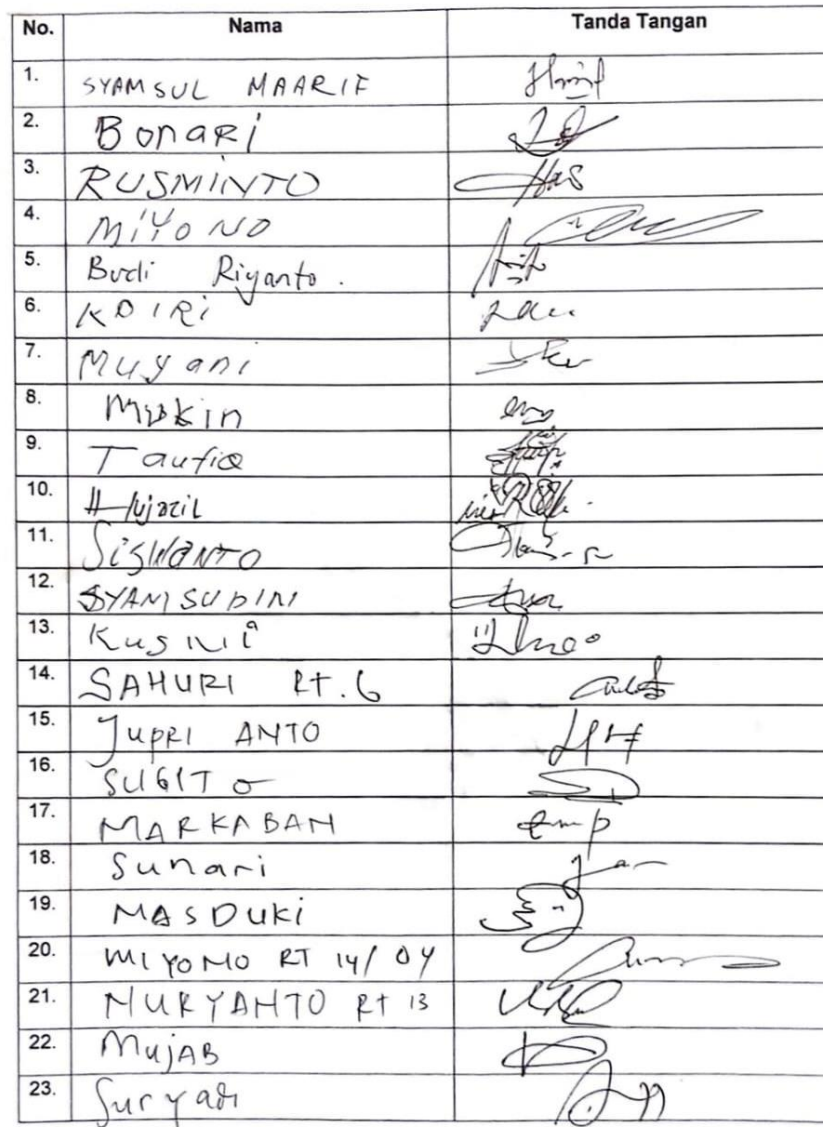 No. Nama Tanda Tangan
1. SYAMSUL MAARIF
2. Bonari
3. RUSMINTO
4. MiYONO
5. Budi Riyanto.
6. KOIRi
7. Muyani
8. Mukin
9. Taufiq
10. Hujazil
11. SiSWANTO
12. SYAMSUDIN
13. Kusnii
14. SAHURI RT.6
15. Jupri ANTO
16. SUGITO
17. MARKABAN
18. Sunari
19. MASDUKi
20. MIYONO RT 14/04
21. NURYANTO RT 13
22. MujAB
23. Suryadi